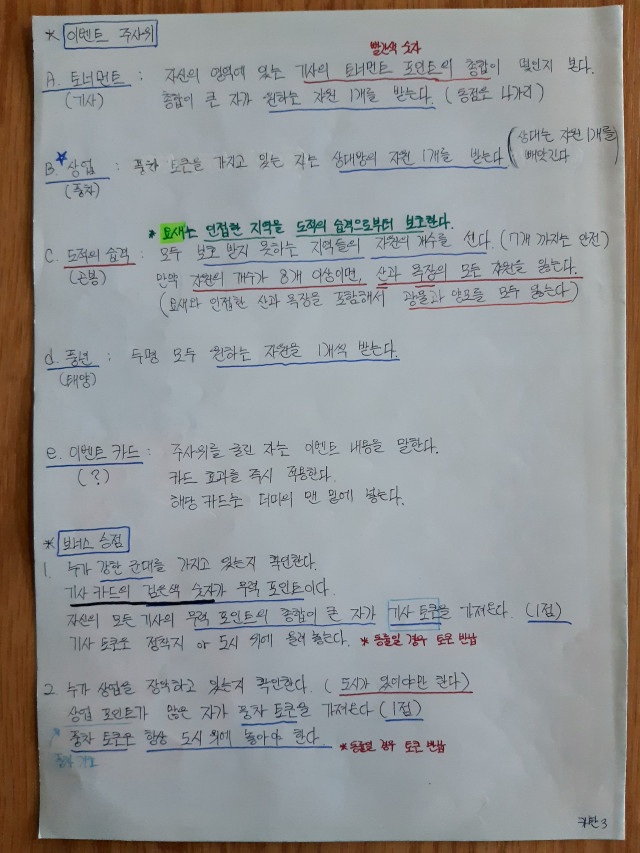 * 이벤트 주사위
빨간색 숫자
A. 토너먼트 : 자신의 영역에 있는 기사의 토너먼트 포인트의 총합이 몇인지 본다.
(기사) 총합이 큰 자가 원하는 자원 1개를 받는다. (동점은 나가리)
B. 상업 : 풍차 토큰을 가지고 있는 자는 상대방의 자원 1개를 받는다 (상대는 자원 1개를
(풍차) 빼앗긴다
* 요새는 인접한 지역을 도적의 습격으로부터 보호한다.
C. 도적의 습격 : 모두 보호 받지 못하는 지역들의 자원의 개수를 센다. (7개 까지는 안전)
(곤봉) 만약 자원의 개수가 8개 이상이면, 산과 목장의 모든 자원을 잃는다.
(요새와 인접한 산과 목장을 포함해서 광물과 양모를 모두 잃는다)
d. 풍년 : 두명 모두 원하는 자원을 1개씩 받는다.
(태양)
e. 이벤트 카드 : 주사위를 굴린 자는 이벤트 내용을 말한다.
(?) 카드 효과를 즉시 적용한다.
해당 카드는 더미의 맨 밑에 넣는다.
* 보너스 승점
1. 누가 강한 군대를 가지고 있는지 확인한다.
기사 카드의 검은색 숫자가 무력 포인트이다.
자신의 모든 기사의 무력 포인트의 총합이 큰 자가 기사 토큰을 가져온다. (1점)
기사 토큰은 정착지 or 도시 위에 올려 놓는다. * 동률일 경우 토큰 반납
2. 누가 상업을 장악하고 있는지 확인한다. (도시가 있어야만 한다)
상업 포인트가 많은 자가 풍차 토큰을 가져온다 (1점)
풍차 토큰은 항상 도시 위에 놓아야 한다. * 동률일 경우 토큰 반납
카탄 3